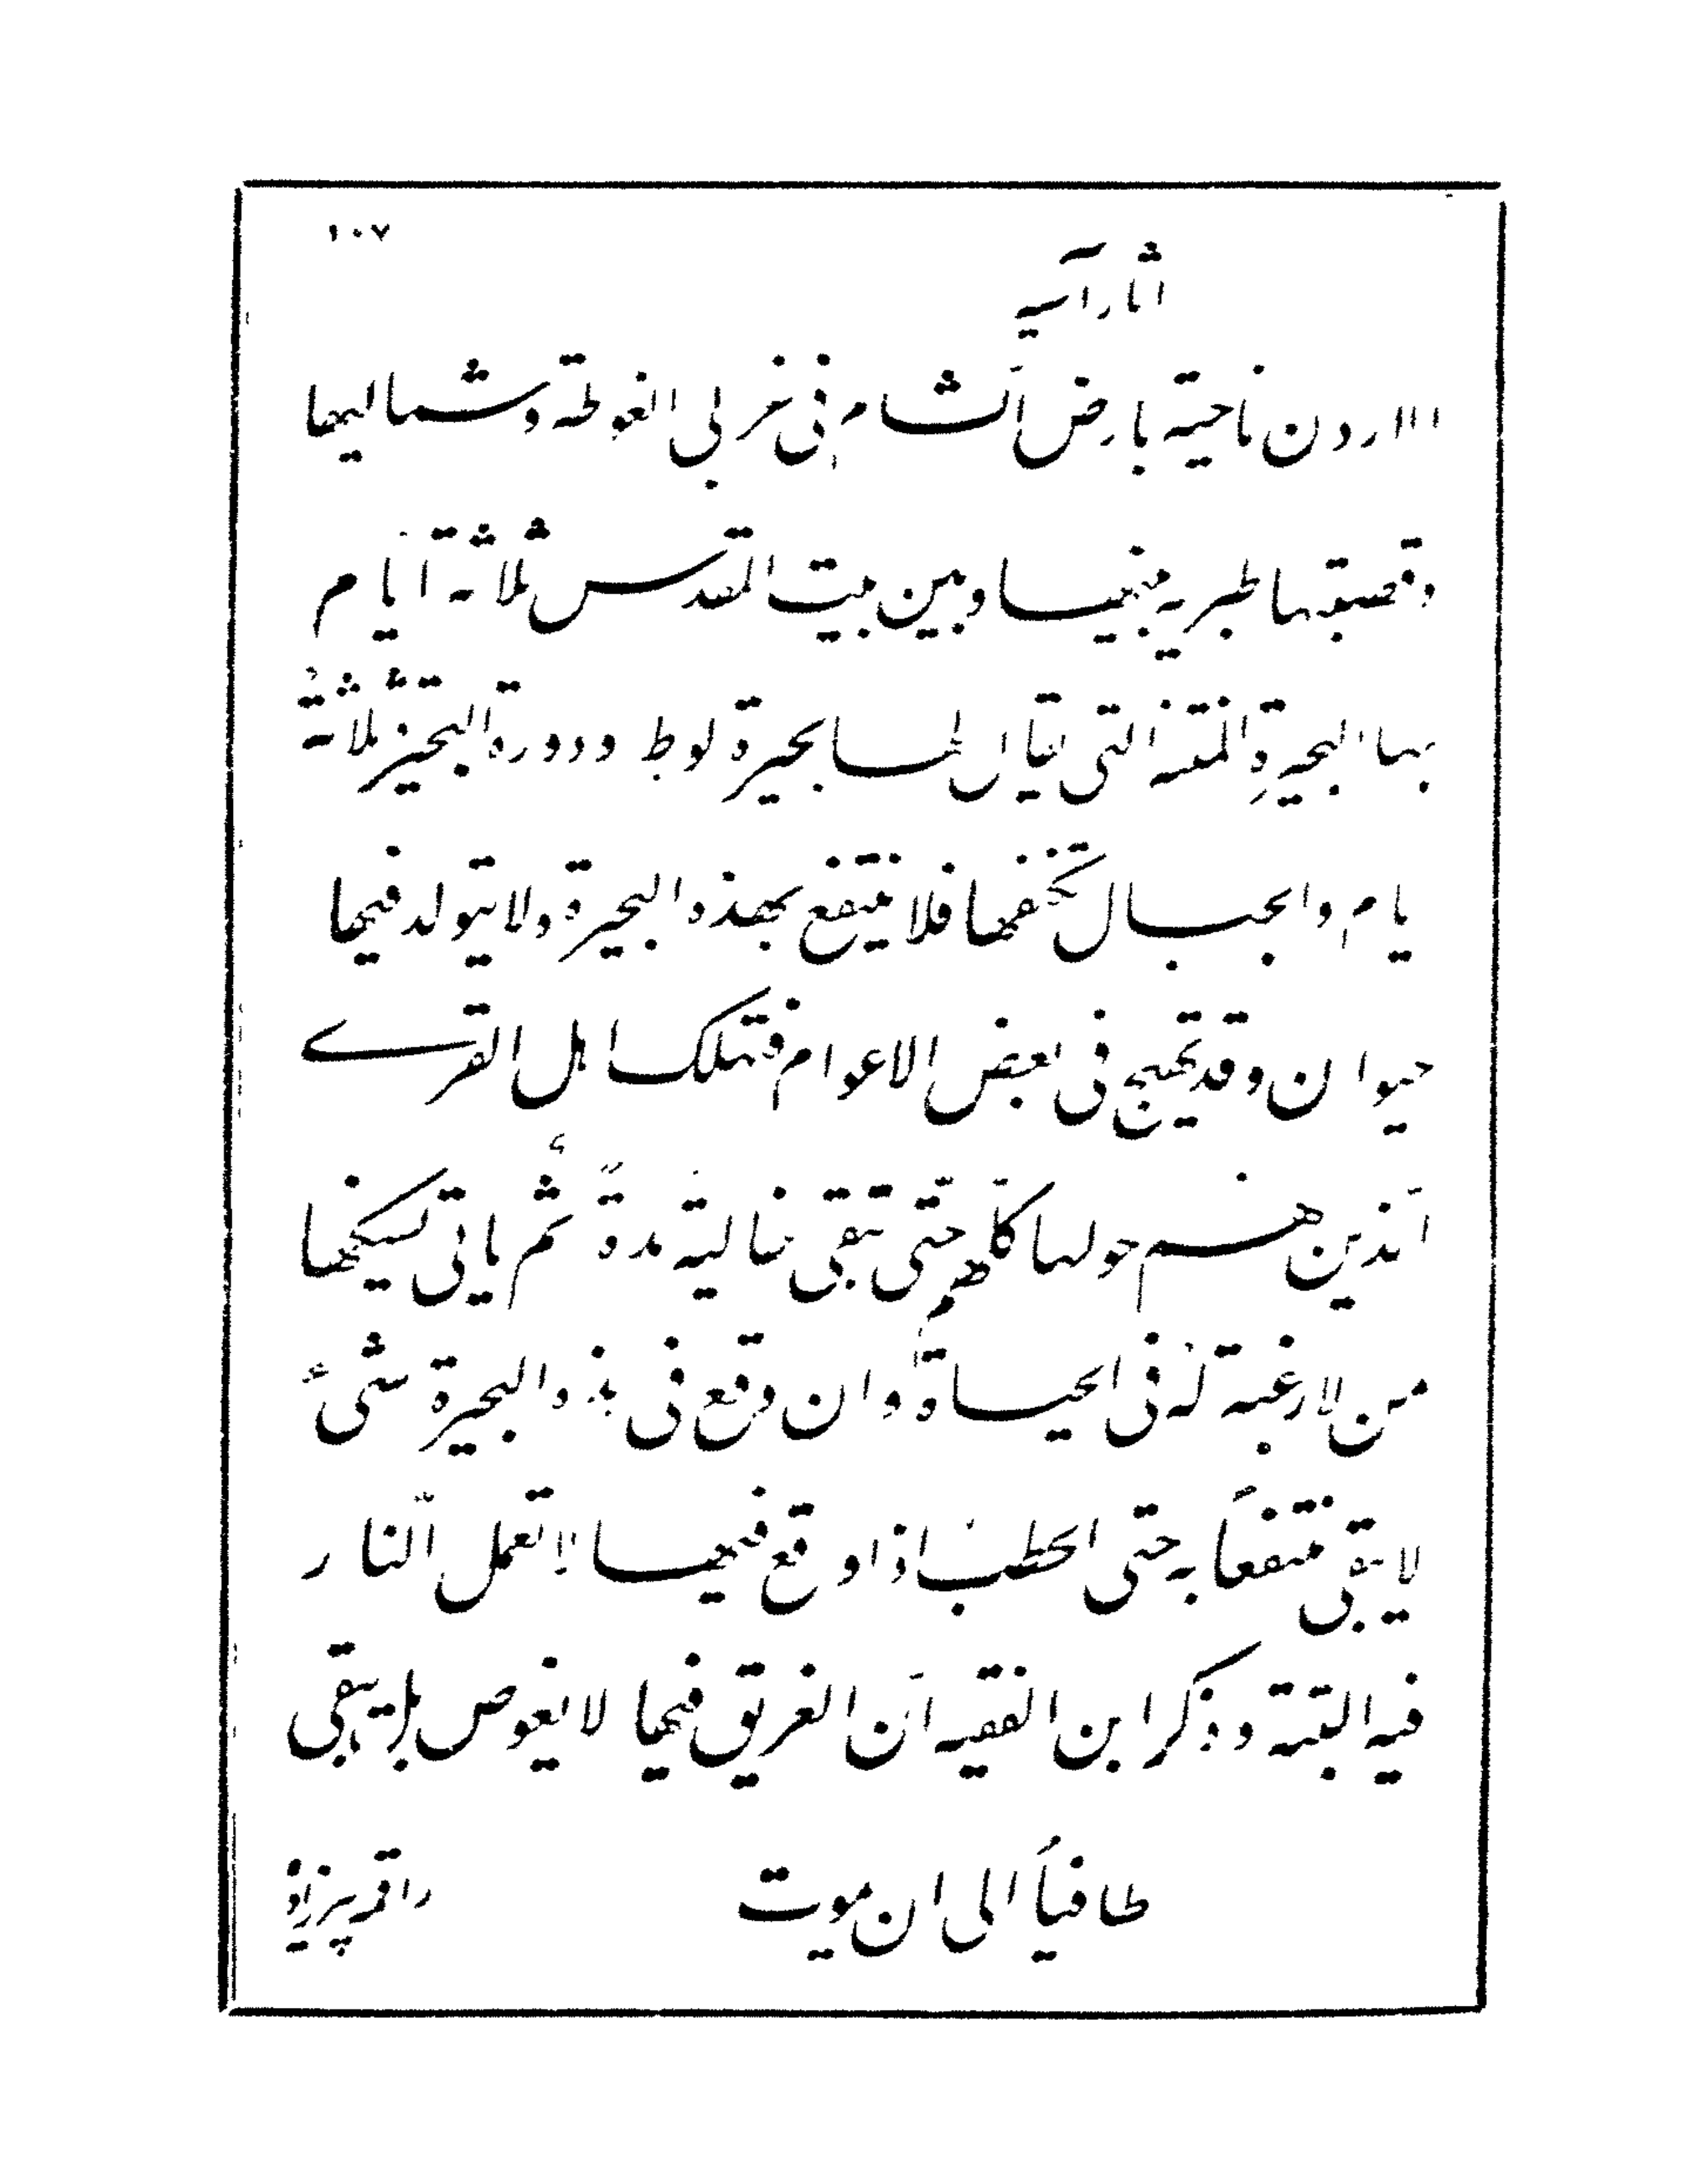 ١٠٧
اثار آسيه
الاردن ناحية بارض الشام فى غربى الغوطة وشماليها
وقصبتها طبريه بينها وبين بيت المقدس ثلاثة ايام
بها البحيرة المنتنه التى يقال لها بحيرة لوط ودورة البحيرة ثلاثة
يام والجبال تكنفها فلا ينتفع بهذه البحيرة ولا يتولد فيها
حيوان وقد تهيج فى بعض الاعوام فتهلك اهل القرے
الذين هم حولها كلهم حتى تبقى خالية مدة ثم ياتى ليسكنها
من لا رغبة له فى الحياة وان وقع فى هذه البحيرة شىء
لا يبقى منتفعاً به حتى الحطب اذا وقع فيها لا تعمل النار
فيه البتة وذكر ابن الفقيه ان الغريق فيها لا يغوص بل يبقى
طافياً الى ان يموت
راقمه پيرزاده